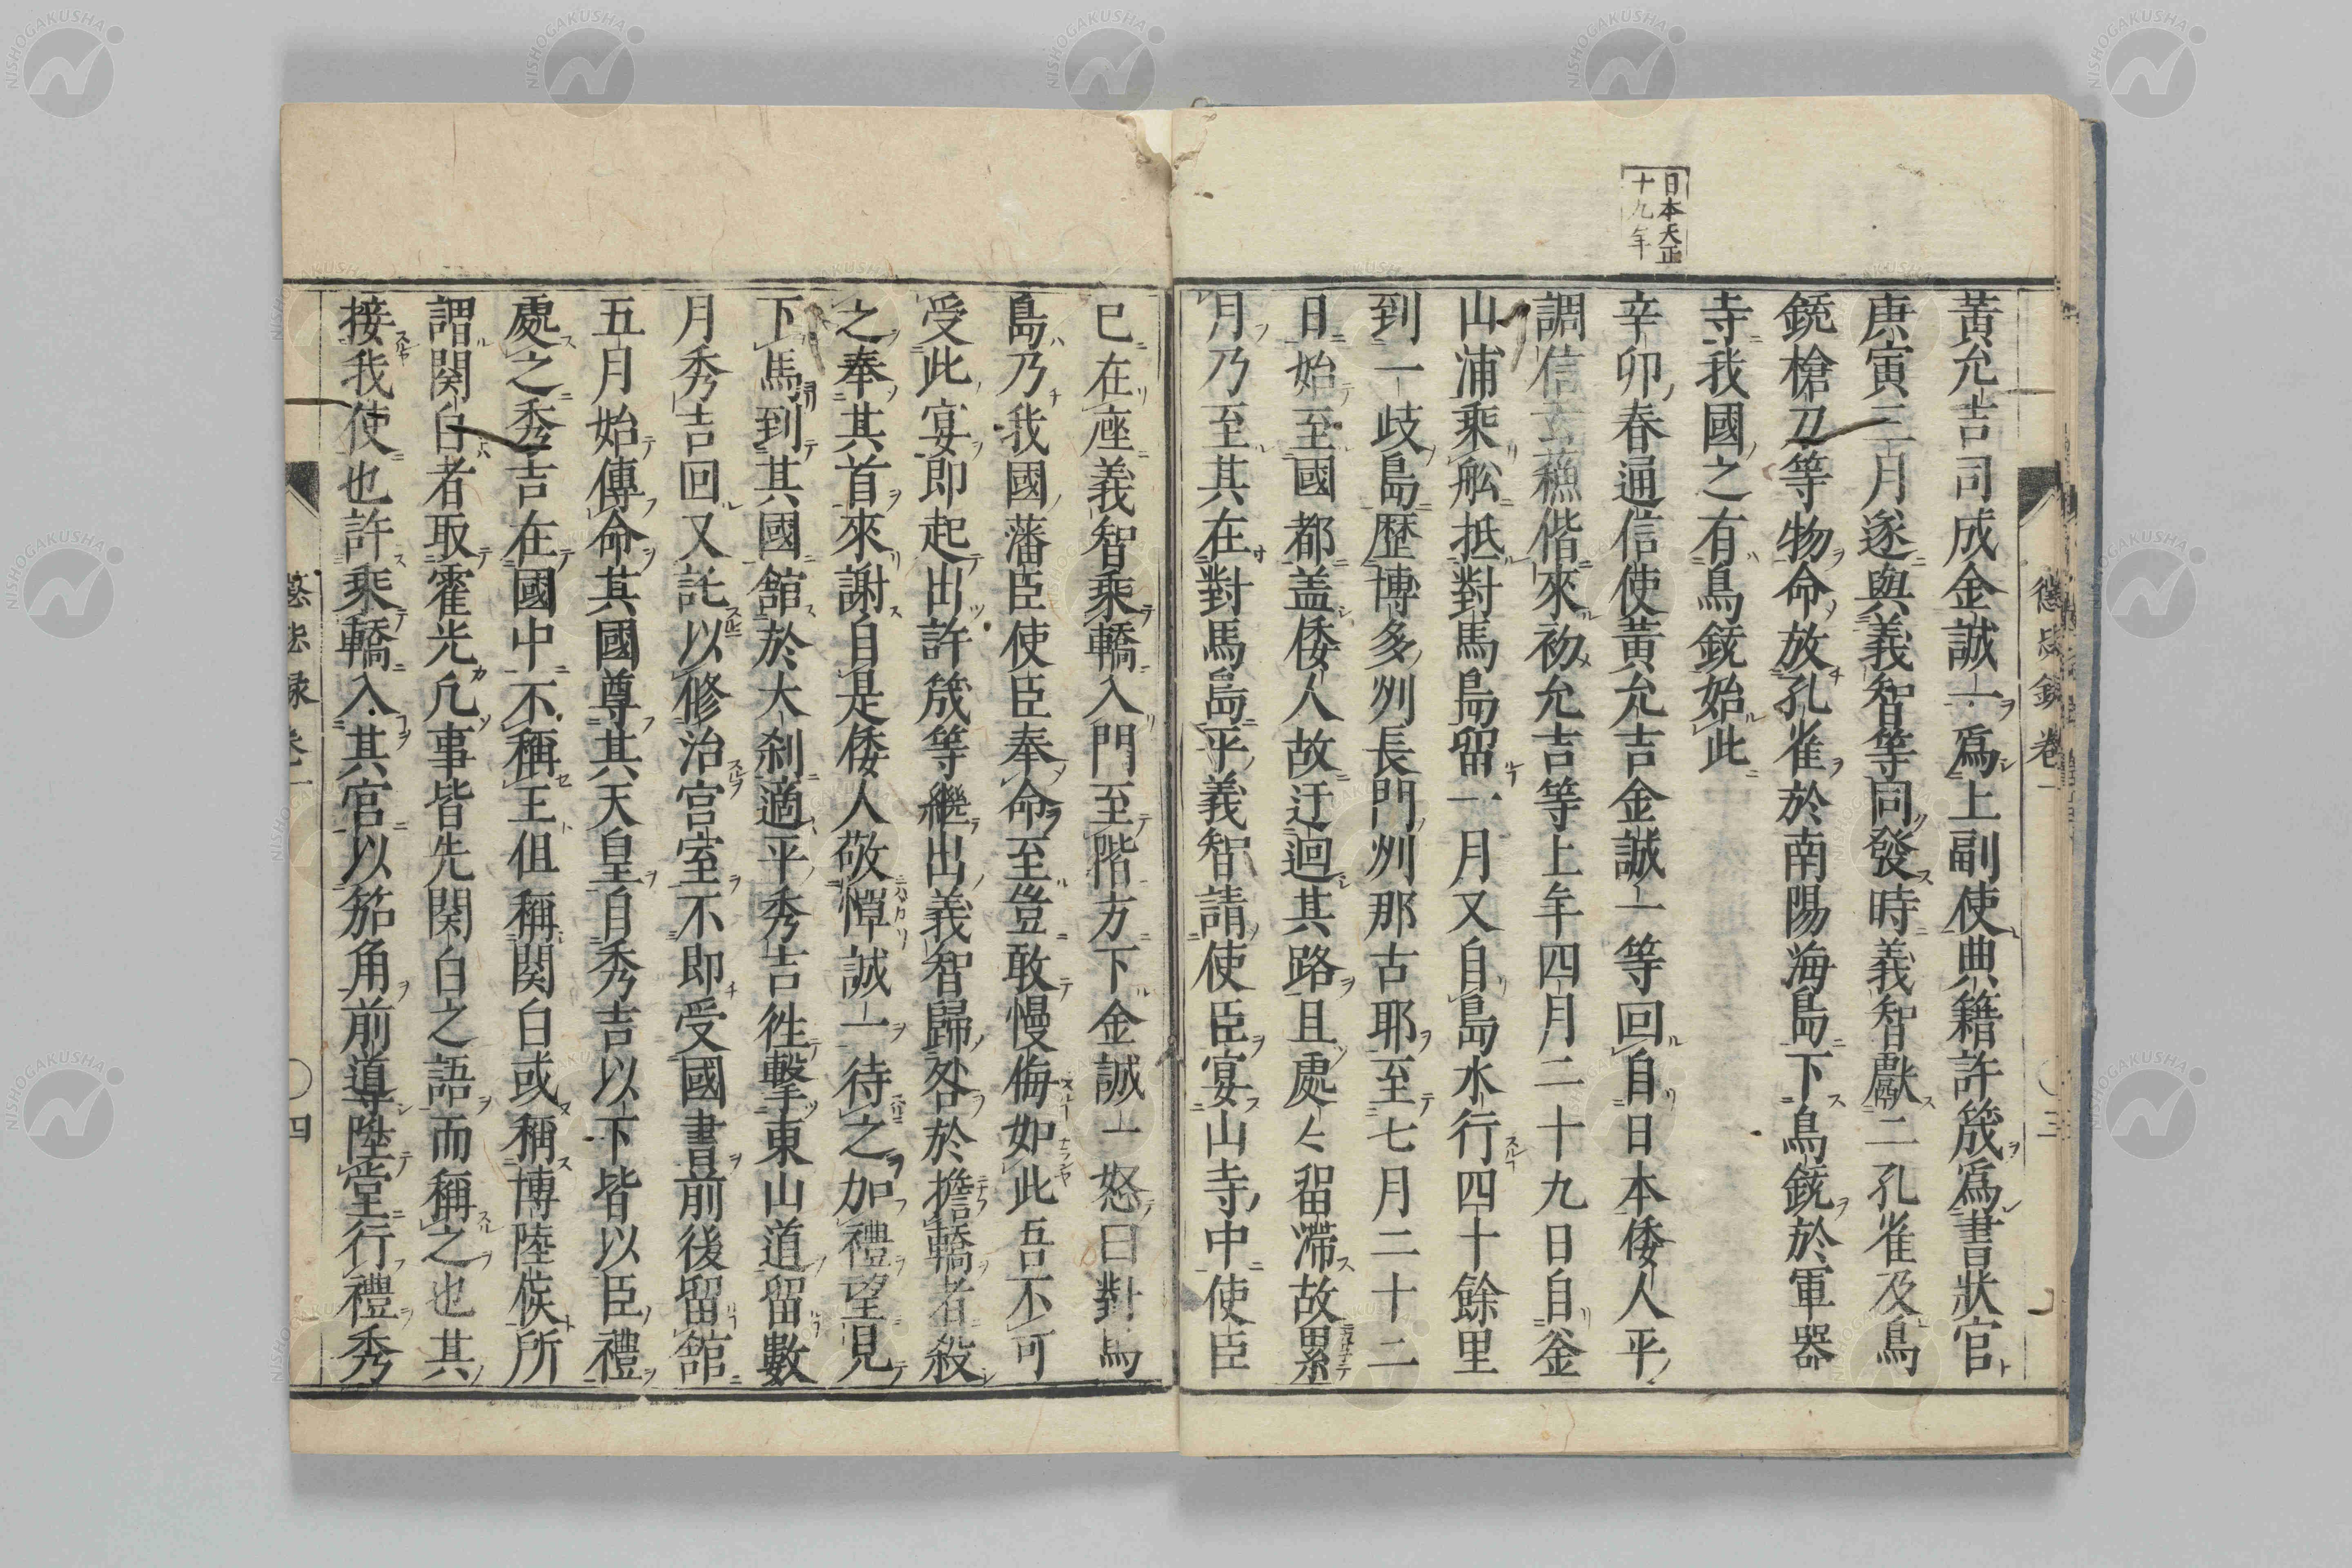 日本天正
十九年
黃允吉司成金誠一爲上副使典籍許筬爲書狀官
庚寅三月遂與義智等同發時義智獻二孔雀及鳥
銃槍刀等物命放孔雀於南陽海島下鳥銃於軍器
寺我國之有鳥銃始此
辛卯春通信使黃允吉金誠一等回自日本倭人平
調信玄蘓偕來初允吉等上年四月二十九日自釜
山浦乘舩抵對馬島留一月又自島水行四十餘里
到一歧島歷博多州長門州那古耶至七月二十二
日始至國都盖倭人故迂迴其路且處々留滯故累
月乃至其在對馬島平義智請使臣宴山寺中使臣
已在座義智乘轎入門至階方下金誠一怒曰對馬
島乃我國藩臣使臣奉命至豈敢慢侮如此吾不可
受此宴即起出許筬等繼出義智歸咎於擔轎者殺
之奉其首來謝自是倭人敬憚誠一待之加禮望見
下馬到其國舘於大刹適平秀吉往擊東山道留數
月秀吉回又託以修治宮室不即受國書前後留舘
五月始傳命其國尊其天皇自秀吉以下皆以臣禮
處之秀吉在國中不稱王但稱関白或稱博陸侯所
謂関白者取霍光凡事皆先関白之語而稱之也其
接我使也許乘轎入其宮以笳角前導陞堂行禮秀
懲毖錄卷一
三
懲毖錄卷一
四
NISHOGAKUSHA